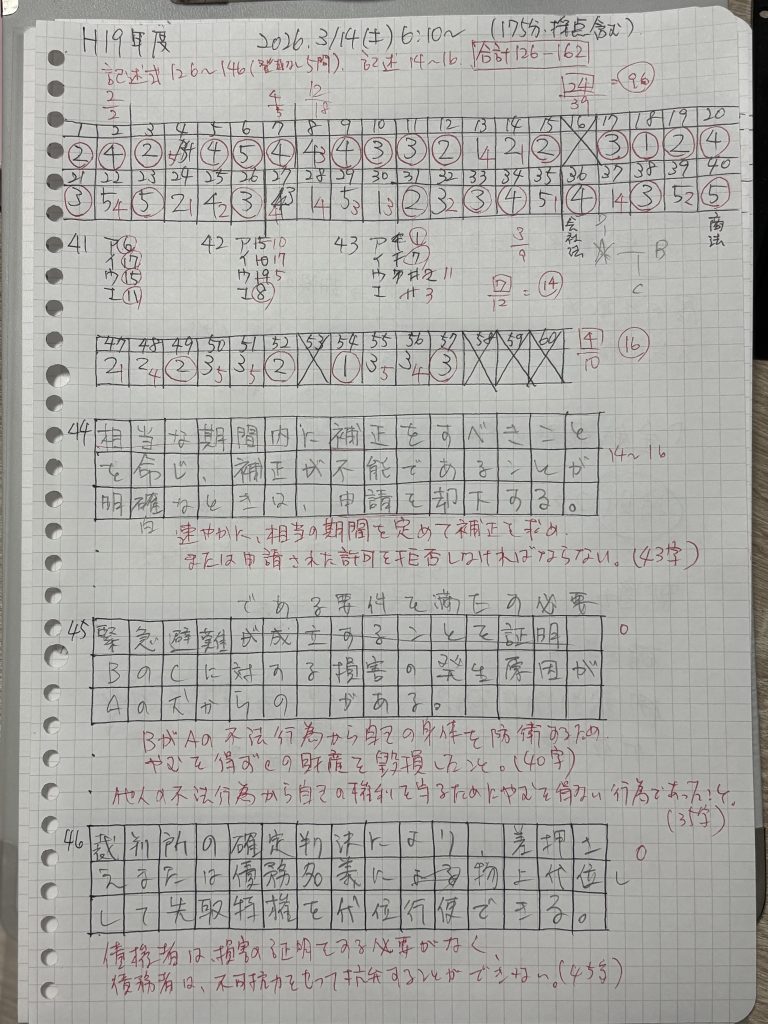 H19年度 2026.3/14(土) 6:10～ (175分.採点含む)
記述式 126～146 記述 14～16. 合計126－162
2/2 4/5 12/18 24/39 = 96
1 2 3 4 5 6 7 8 9 10 11 12 13 14 15 16 17 18 19 20
② ④ ② ④ ⑤ ④ 4 3 ④ ③ ③ ② 1 4 2 1 ② ③ ① ② ④
21 22 23 24 25 26 27 28 29 30 31 32 33 34 35 36 37 38 39 40
③ 5 4 ⑤ 2 1 4 2 ③ 4 3 1 4 5 3 1 3 ② 3 2 ③ ④ 5 1 ④ 1 4 ③ 5 2 ⑤
41 ア⑥ 42 ア15 10 43 ア ① 3/9 会社法 商法
イ⑰ イ10 17 イ ⑦ B
ウ⑮ ウ19 5 ウ 11 7/12 = ⑭ C
エ⑪ エ⑧ エ サ 3
47 48 49 50 51 52 53 54 55 56 57 58 59 60 4/10 ⑯
2 1 2 4 ② 3 5 3 5 ② ① 3 5 3 4 ③
44 相当な期間内に補正をすべきこと
を命じ、補正が不能であることが 14～16
明確なときは、申請を却下する。
速やかに、相当の期間を定めて補正を求め、
または申請された許可を拒否しなければならない。(43字)
である要件を満たす必要
45 緊急避難が成立することを証明 0
BのCに対する損害の発生原因が
Aの犬からの がある。
BがAの不法行為から自己の身体を防衛するため
やむを得ずCの財産を毀損したこと。(40字)
他人の不法行為から自己の権利を守るためにやむを得ない行為であったこと。
(35字)
46 裁判所の確定判決により、差押さ 0
えまたは債務名義による物上代位し
して先取特権を代位行使できる。
債権者は、損害の証明をする必要がなく、
債務者は、不可抗力をもって抗弁することができない。(45字)